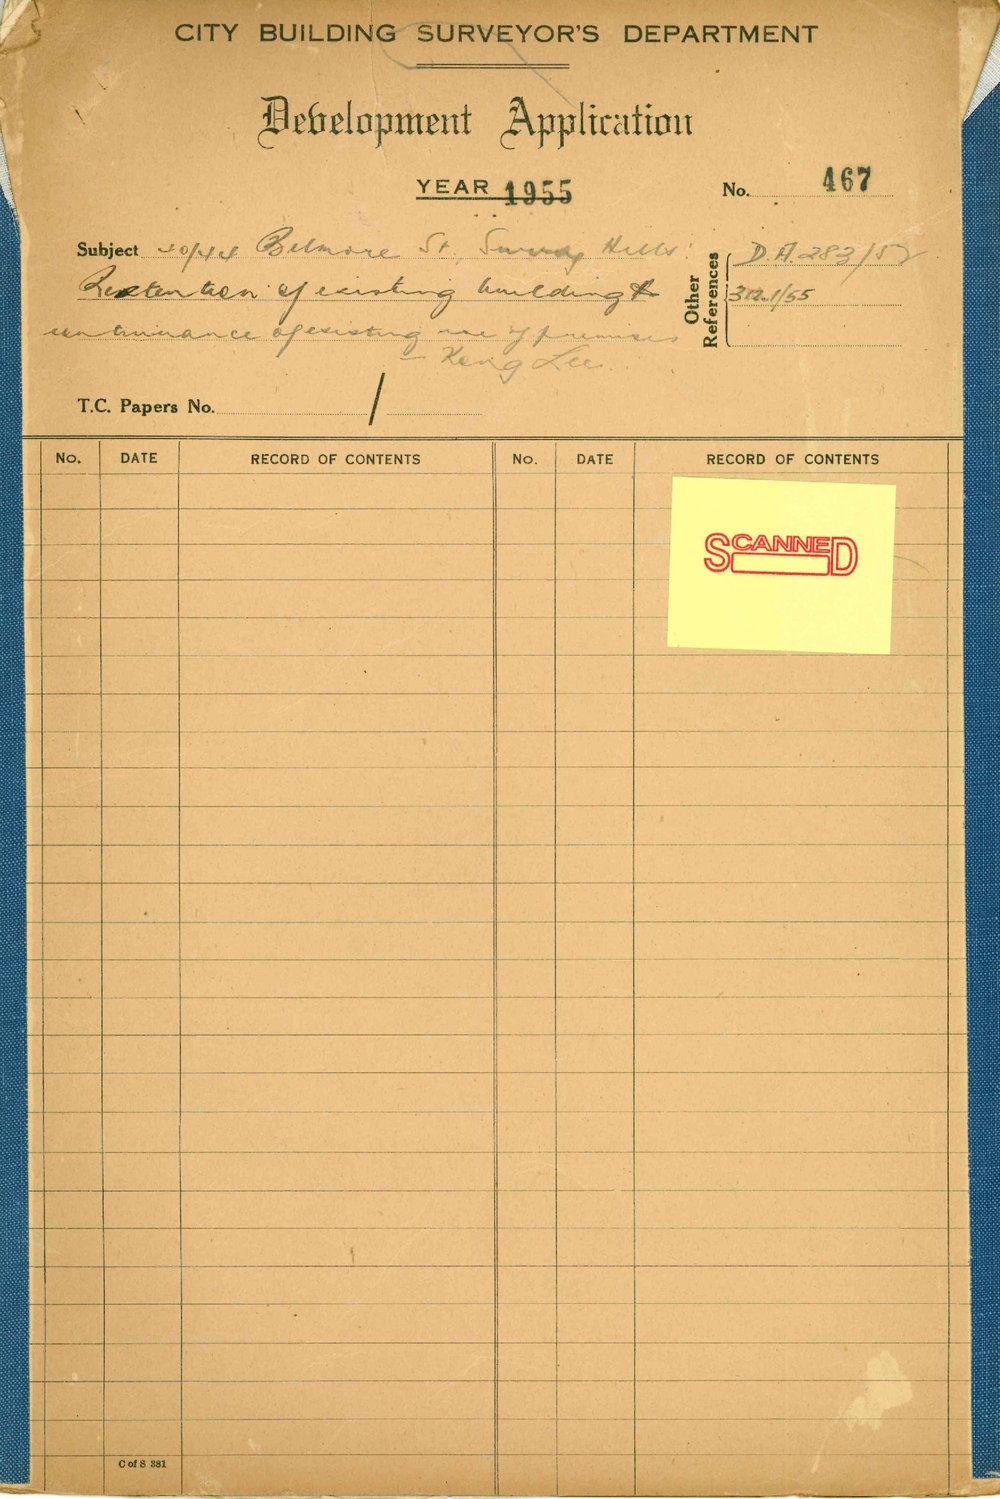 CITY BUILDING SURVEYOR'S DEPARTMENT
Development Application
YEAR 1955
No. 467
Subject 40/44 Belmore St, Surry Hills:
Retention of existing building &
continuance of existing use of premises
— Keng Lee
Other References
D.A 283/52
312.1/55
T.C. Papers No. /
No. DATE RECORD OF CONTENTS No. DATE RECORD OF CONTENTS
SCANNED
C of S 381